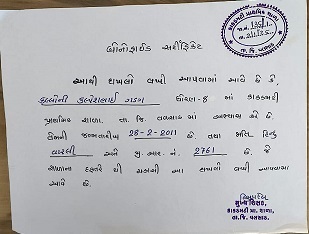 બોનોફાઈડ સર્ટીફિકેટ
આથી દાખલો લખી આપવામાં આવે છે કે,
ધોરણ-૪ માં કાકડમટી
પ્રાથમિક શાળા. તા.જિ. વલસાડ માં અભ્યાસ કરે છે.
તેમની જન્મતારીખ 28-2-2011 છે. તથા જાતિ હિન્દુ
વારલી અને જી.આર. નં. 2761 છે. જે
શાળાના દફતરે થી ચકાસી આ દાખલો લખી આપવામાં
આવે છે.
મુખ્ય શિક્ષક,
કાકડમટી પ્રા. શાળા,
તા.જિ. વલસાડ.